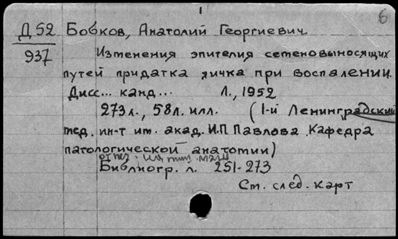 6
Д 52 Бобков, Анатолий Георгиевич
937
Изменения эпителия семеновыносящих
путей придатка яичка при воспалении.
Дисс... канд... Л., 1952
273л., 58л. илл. (1-й Ленинградский
мед. ин-т им. акад. И.П Павлова. Кафедра
патологической анатомии)
Библиогр. л. 251-273
См. след. карт